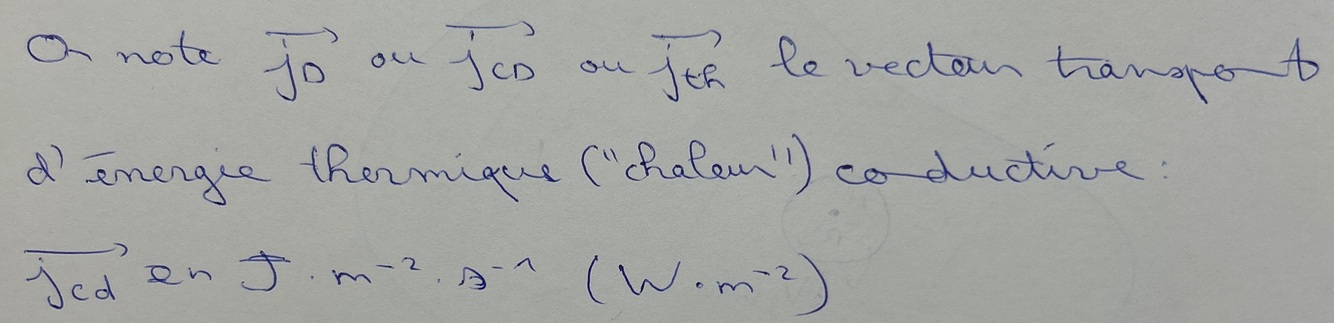 On note $\overrightarrow{j_D}$ ou $\overrightarrow{j_{CD}}$ ou $\overrightarrow{j_{th}}$ le vecteur transport
d'énergie thermique ("chaleur") conductive :
$\overrightarrow{j_{cd}}$ en J · m⁻² · s⁻¹ (W · m⁻²)